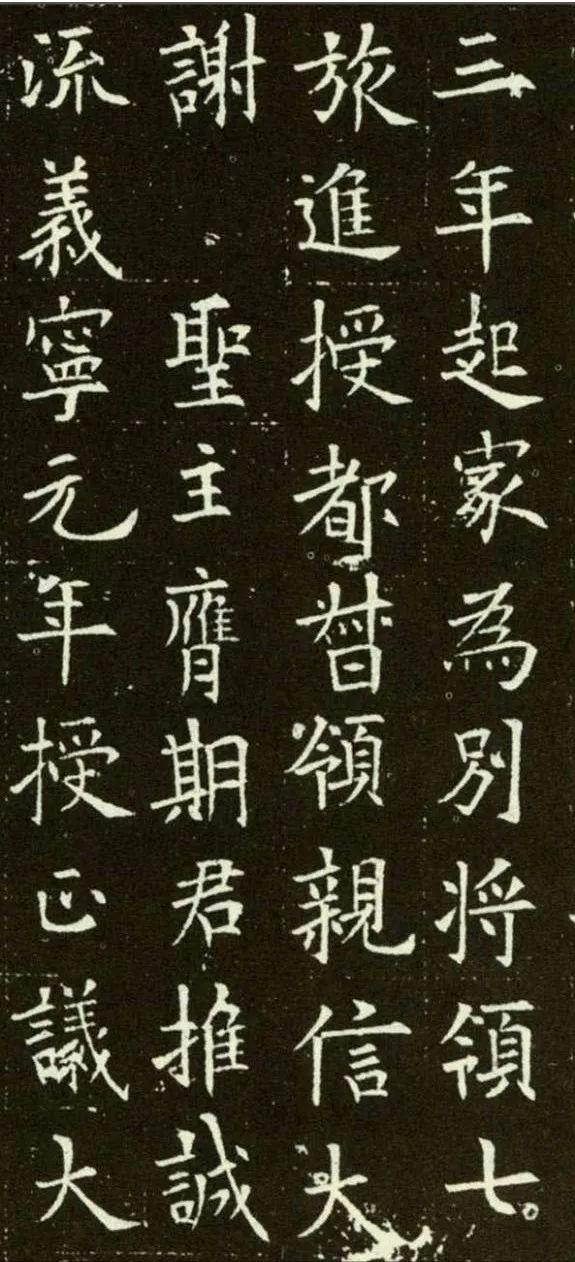 三年起家為別將領七
旅進授都督領親信大
謝　聖主膺期君推誠
流義寧元年授正議大